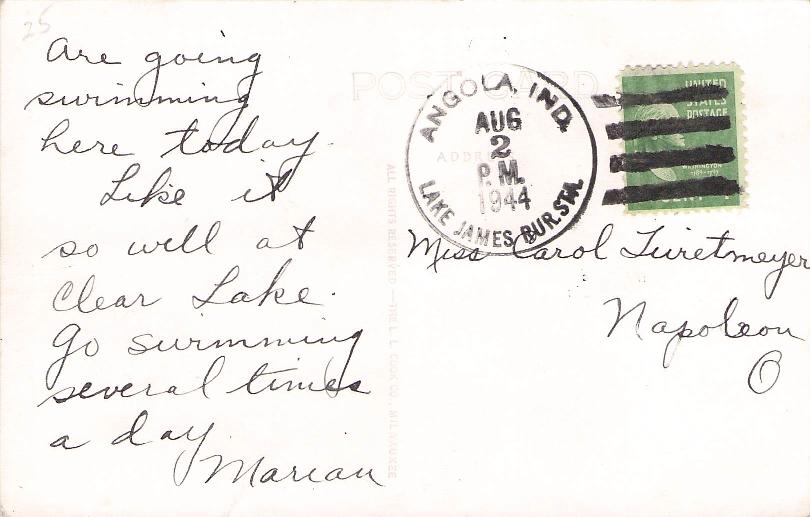 25
Are going
swimming
here today.
Like it
so well at
Clear Lake.
Go swimming
several times
a day
Marian
POST CARD
ADDRESS
ALL RIGHTS RESERVED — THE L. L. COOK CO. MILWAUKEE
ANGOLA, IND.
AUG
2
P.M.
1944
LAKE JAMES BUR. STA.
UNITED
STATES
POSTAGE
WASHINGTON
Miss Carol
Napoleon
O